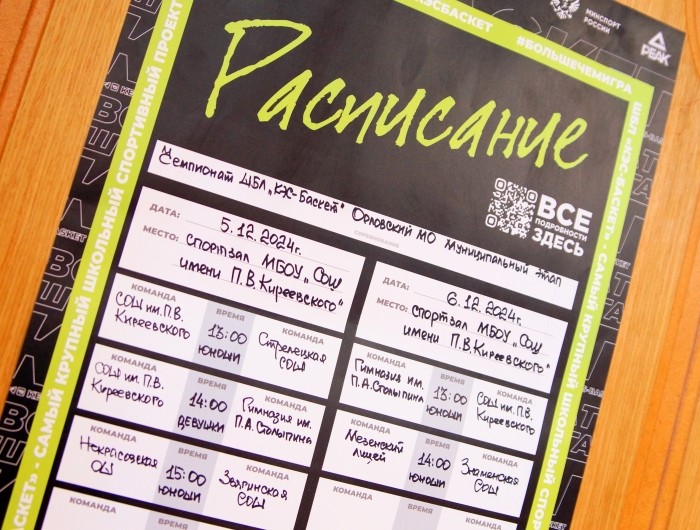 КЭСБАСКЕТ
#БОЛЬШЕЧЕМИГРА
МИНСПОРТ
РОССИИ
PEAK
САМЫЙ КРУПНЫЙ ШКОЛЬНЫЙ СПОРТИВНЫЙ ПРОЕКТ
ШБЛ «КЭС-БАСКЕТ» - САМЫЙ КРУПНЫЙ ШКОЛЬНЫЙ СПО
Расписание
Чемпионат ШБЛ „КЭС-Баскет" Орловский МО Муниципальный этап
СОРЕВНОВАНИЕ
ВСЕ
ПОДРОБНОСТИ
ЗДЕСЬ
ДАТА: 5.12.2024г.
МЕСТО: спортзал МБОУ „СОШ
имени П.В.Киреевского"
КОМАНДА ВРЕМЯ КОМАНДА
СОШ им. П.В.
Киреевского
13:00
юноши
Стрелецкая
СОШ
КОМАНДА ВРЕМЯ КОМАНДА
СОШ им. П.В.
Киреевского
14:00
девушки
Гимназия им.
П.А.Столыпина
КОМАНДА ВРЕМЯ КОМАНДА
Некрасовская
ОШ
15:00
юноши
Звягинская
СОШ
КОМАНДА ВРЕМЯ
ДАТА: 6.12.2024г.
МЕСТО: спортзал МБОУ „СОШ
имени П.В.Киреевского"
КОМАНДА ВРЕМЯ КОМАНДА
Гимназия им.
П.А.Столыпина
13:00
юноши
СОШ им. П.В.
Киреевского
КОМАНДА ВРЕМЯ КОМАНДА
Мезенский
лицей
14:00
юноши
Знаменская
СОШ
КОМАНДА ВРЕМЯ КОМАНДА